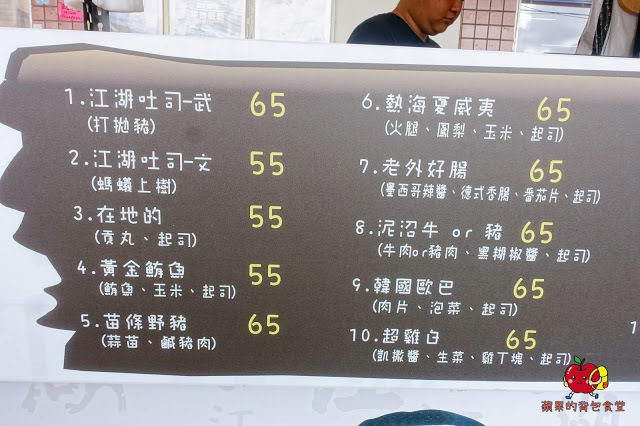 1.江湖吐司-武 65
(打拋豬)
2.江湖吐司-文 55
(螞蟻上樹)
3.在地的 55
(貢丸、起司)
4.黃金鮪魚 55
(鮪魚、玉米、起司)
5.苗條野豬 65
(蒜苗、鹹豬肉)
6.熱海夏威夷 65
(火腿、鳳梨、玉米、起司)
7.老外好腸 65
(墨西哥辣醬、德式香腸、番茄片、起司)
8.泥沼牛 or 豬 65
(牛肉or豬肉、黑胡椒醬、起司)
9.韓國歐巴 65
(肉片、泡菜、起司)
10.超雞白 65
(凱撒醬、生菜、雞丁塊、起司)
1
蘋果的背包食堂
江